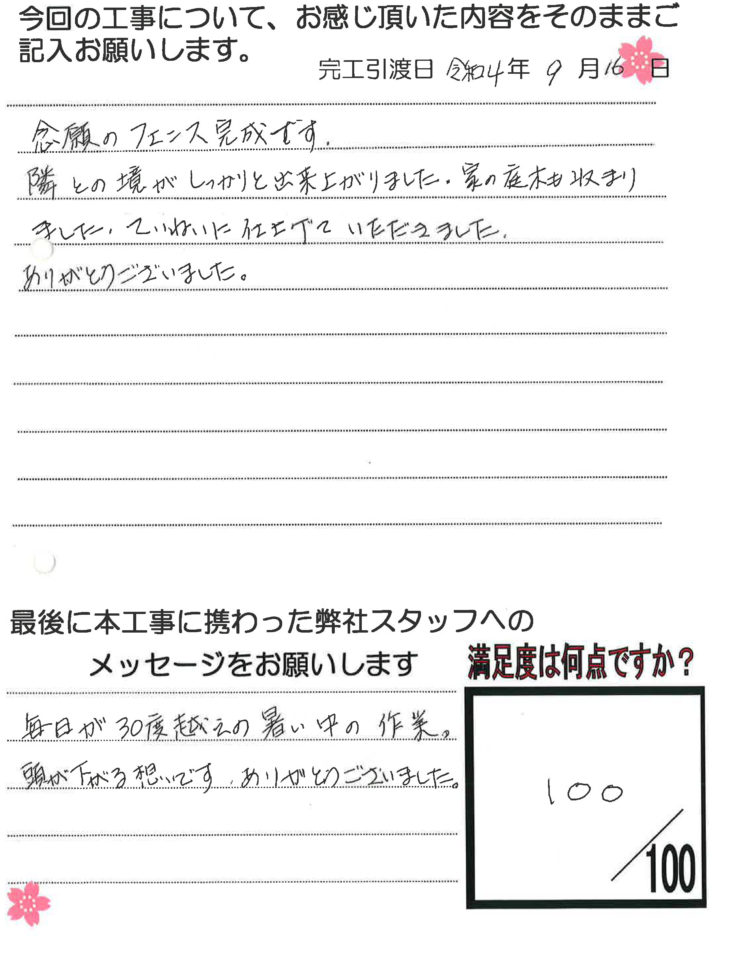 今回の工事について、お感じ頂いた内容をそのままご
記入お願いします。
完工引渡日 令和4年 9月16日
念願のフェンス完成です.
隣との境がしっかりと出来上がりました. 家の庭木も収まり
ました. ていねいに仕上げていただきました.
ありがとうございました。
最後に本工事に携わった弊社スタッフへの
メッセージをお願いします
満足度は何点ですか？
毎日が30度越えの暑い中の作業。
頭が下がる想いです. ありがとうございました。
100
/100